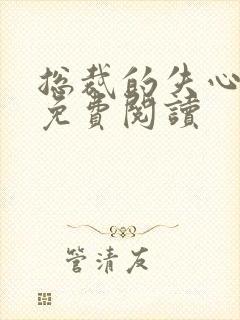 总裁的失心
免費閱讀
管清友